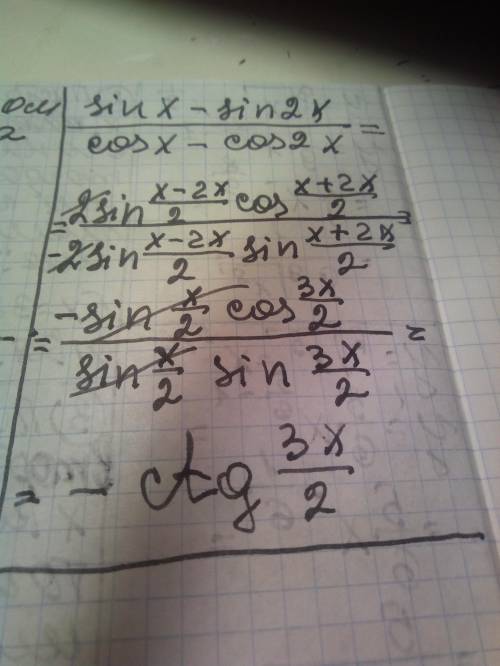 sin x - sin 2x
cos x - cos 2x =
= 2 sin x-2x/2 cos x+2x/2 =
-2 sin x-2x/2 sin x+2x/2
= - sin x/2 cos 3x/2 =
sin x/2 sin 3x/2
= - ctg 3x/2